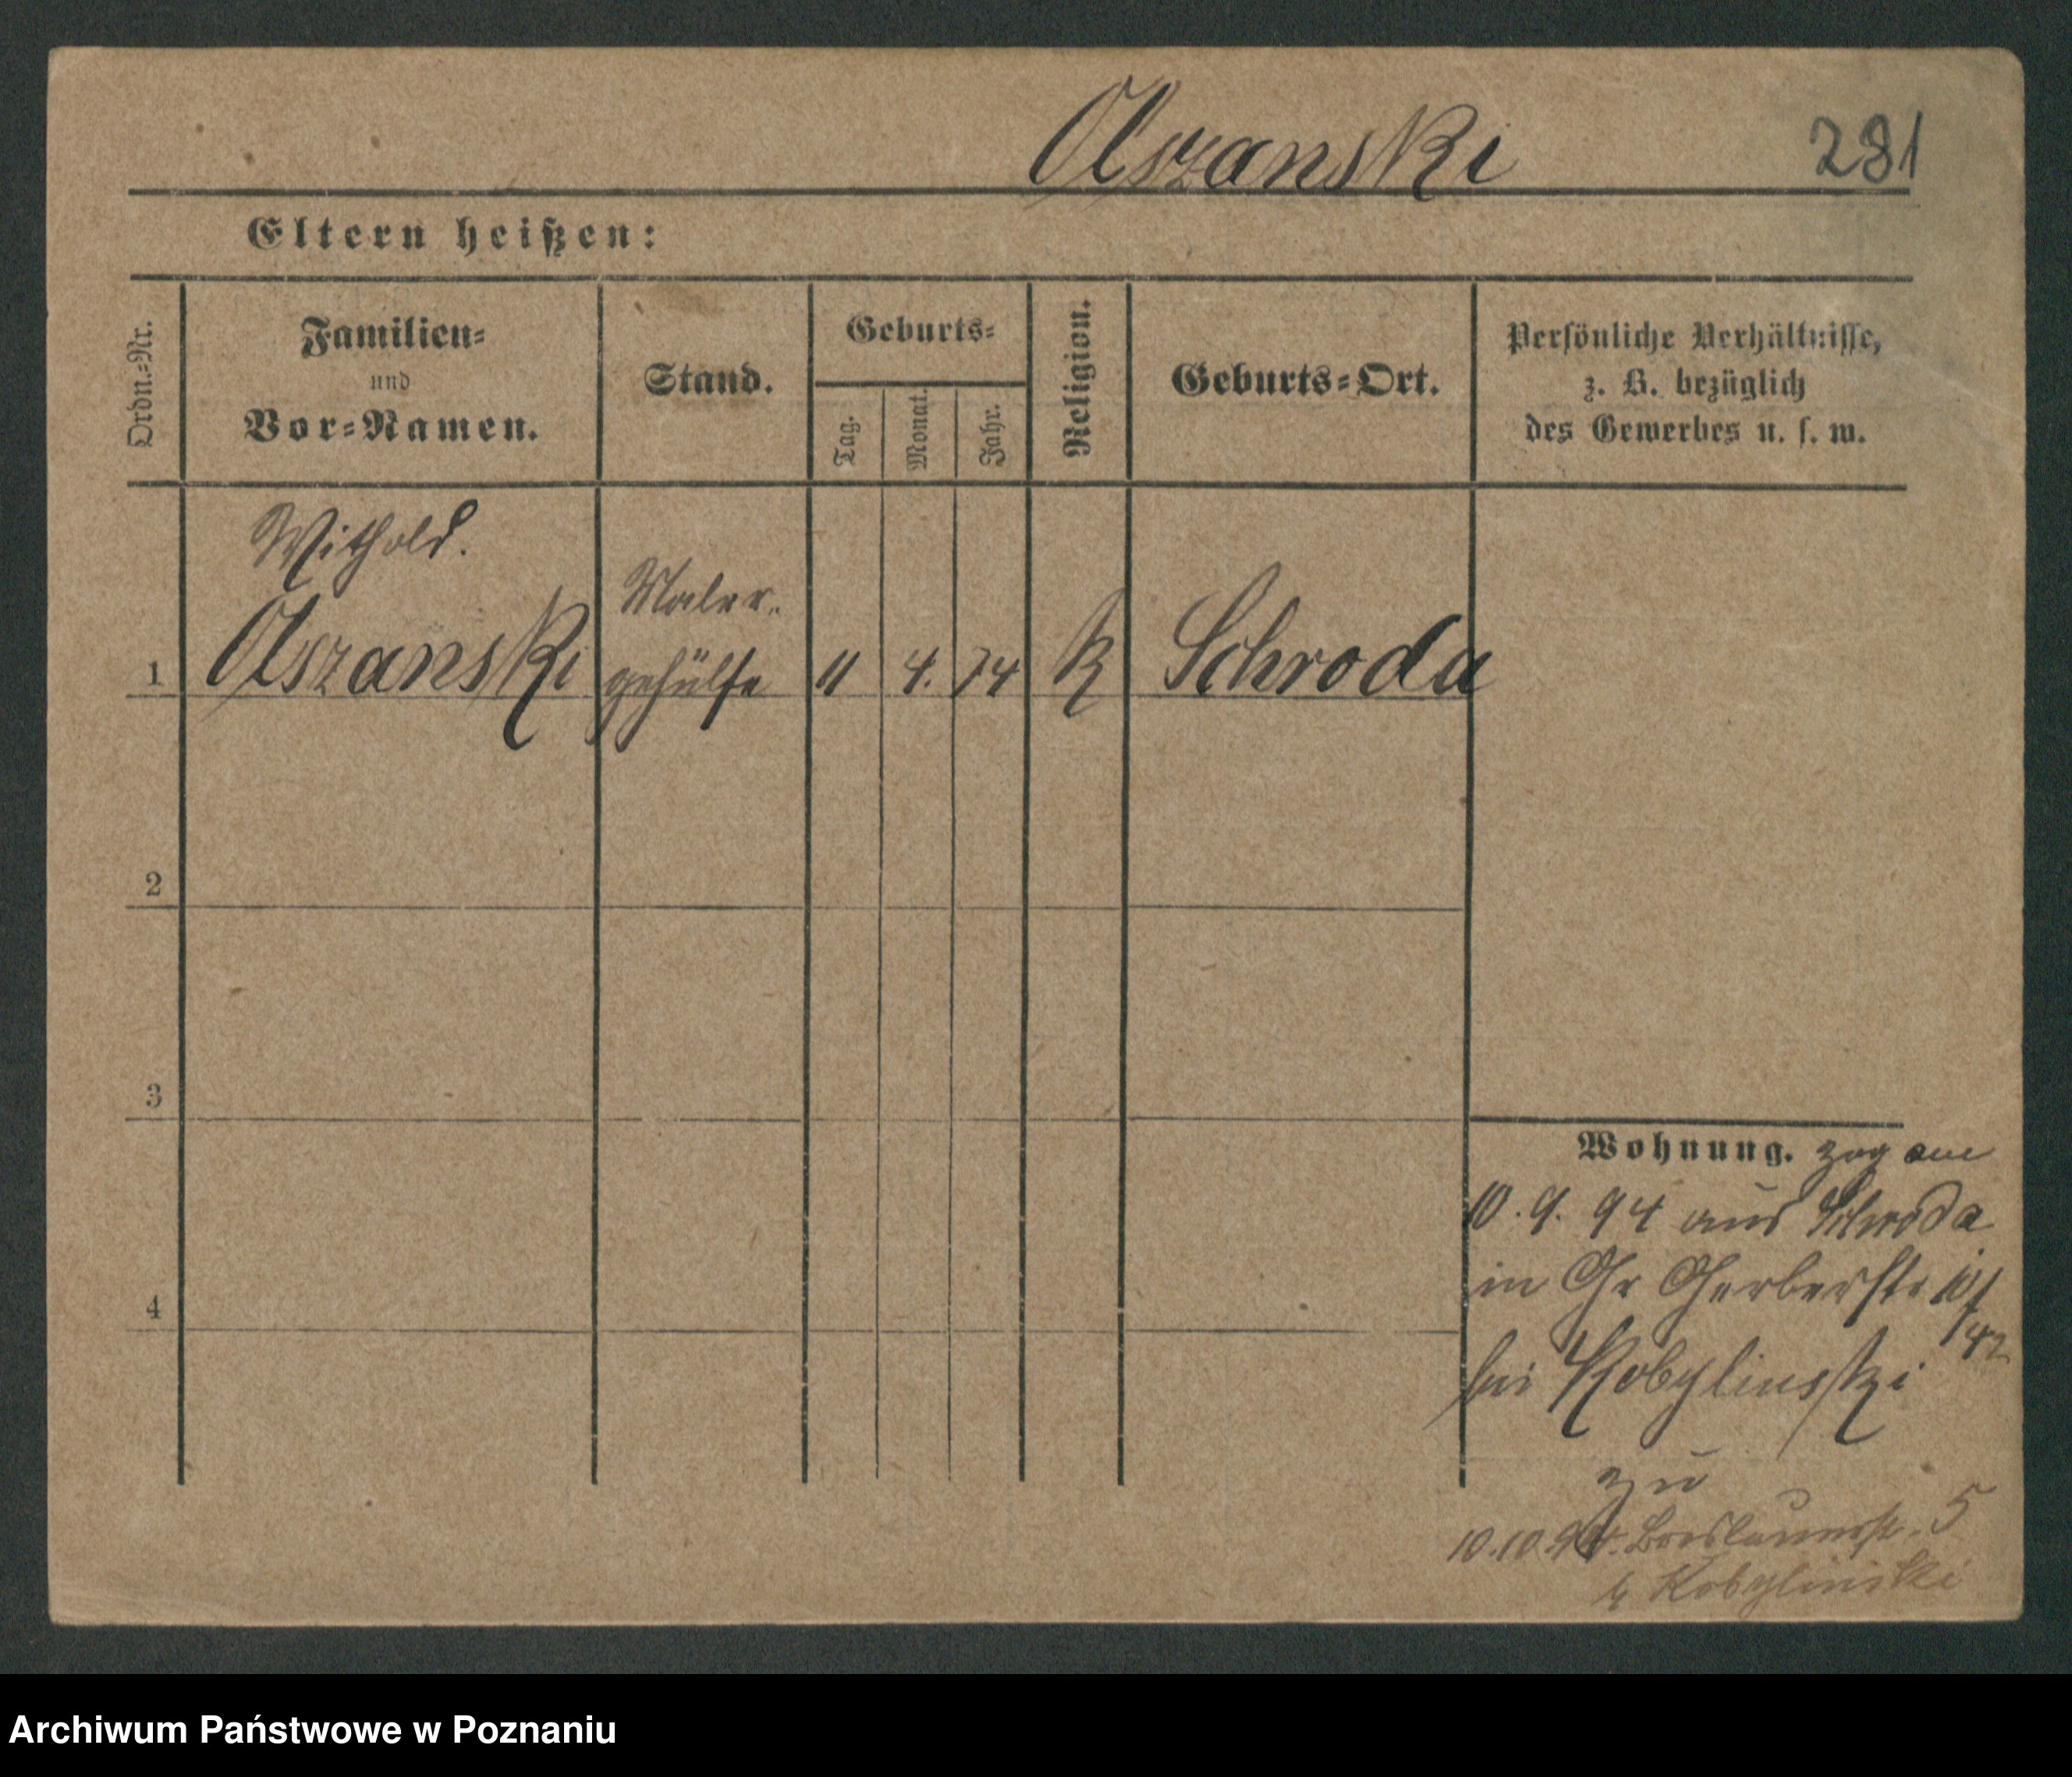 Olszanski 281
Eltern heißen:
Ordn.-Nr.
Familien-
und
Vor-Namen.
Stand.
Geburts-
Tag.
Monat.
Jahr.
Religion.
Geburts-Ort.
Persönliche Verhältnisse,
z. B. bezüglich
des Gewerbes u. s. w.
Withold.
Maler-
1 Olszanski gehülfe 11 4. 74 K Schroda
2
3
4
Wohnung. zog am
10. 9. 94 aus Schroda
in Gr Gerberstr
bei Kobylinski
zu
10.10.94. Breslauerstr. 5
b Kobylinski
Archiwum Państwowe w Poznaniu